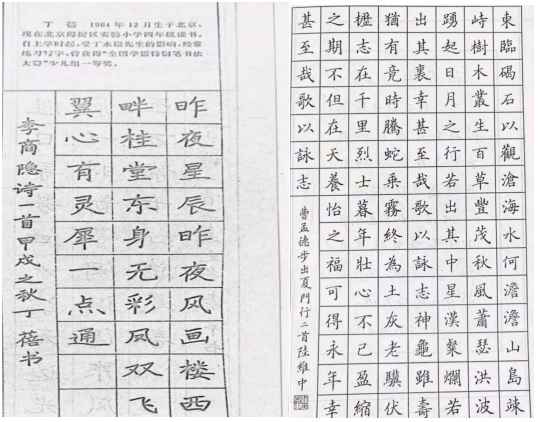 丁 蓓 1984年12月生于北京,
现在北京海淀区实验小学四年级读书。
自上学时起,受丁永 先生的影响,经常
练习写字,曾获得“全国学雷锋钢笔书法
大赛”少儿组一等奖。
昨夜星辰昨夜风画楼西
畔桂堂东身无彩凤双飞
翼心有灵犀一点通
李商隐诗一首甲戌之秋丁蓓书
東臨碣石以觀滄海水何澹澹山島竦
峙樹木叢生百草豐茂秋風蕭瑟洪波
踴起日月之行若出其中星漢粲爛若
出其裏幸甚至哉歌以詠志神龜雖壽
猶有竟時騰蛇乘霧終為土灰老驥伏
櫪志在千里烈士暮年壯心不已盈縮
之期不但在天養怡之福可得永年幸
甚至哉歌以詠志
曹孟德步出夏門行二首陸維中